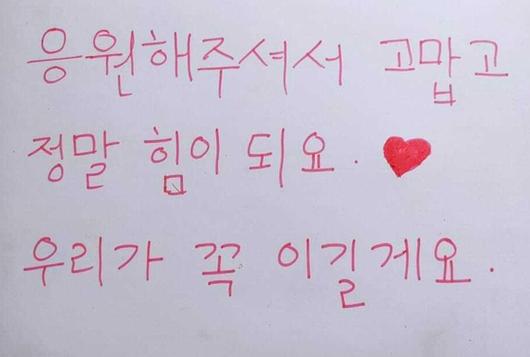 응원해주셔서 고맙고
정말 힘이 되요. ❤
우리가 꼭 이길게요.